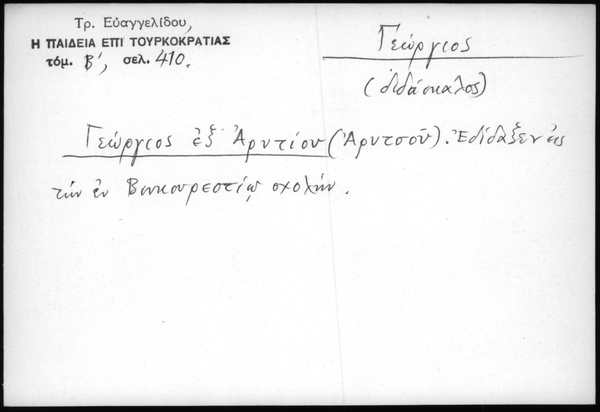 Τρ. Εὐαγγελίδου,
Η ΠΑΙΔΕΙΑ ΕΠΙ ΤΟΥΡΚΟΚΡΑΤΙΑΣ
τόμ. Β', σελ. 410.
Γεώργιος
(διδάσκαλος)
Γεώργιος ἐξ Ἀρυτίου (Ἀρυτσοῦ). Ἐδίδαξεν εἰς
τὴν ἐν Βουκουρεστίῳ σχολήν.